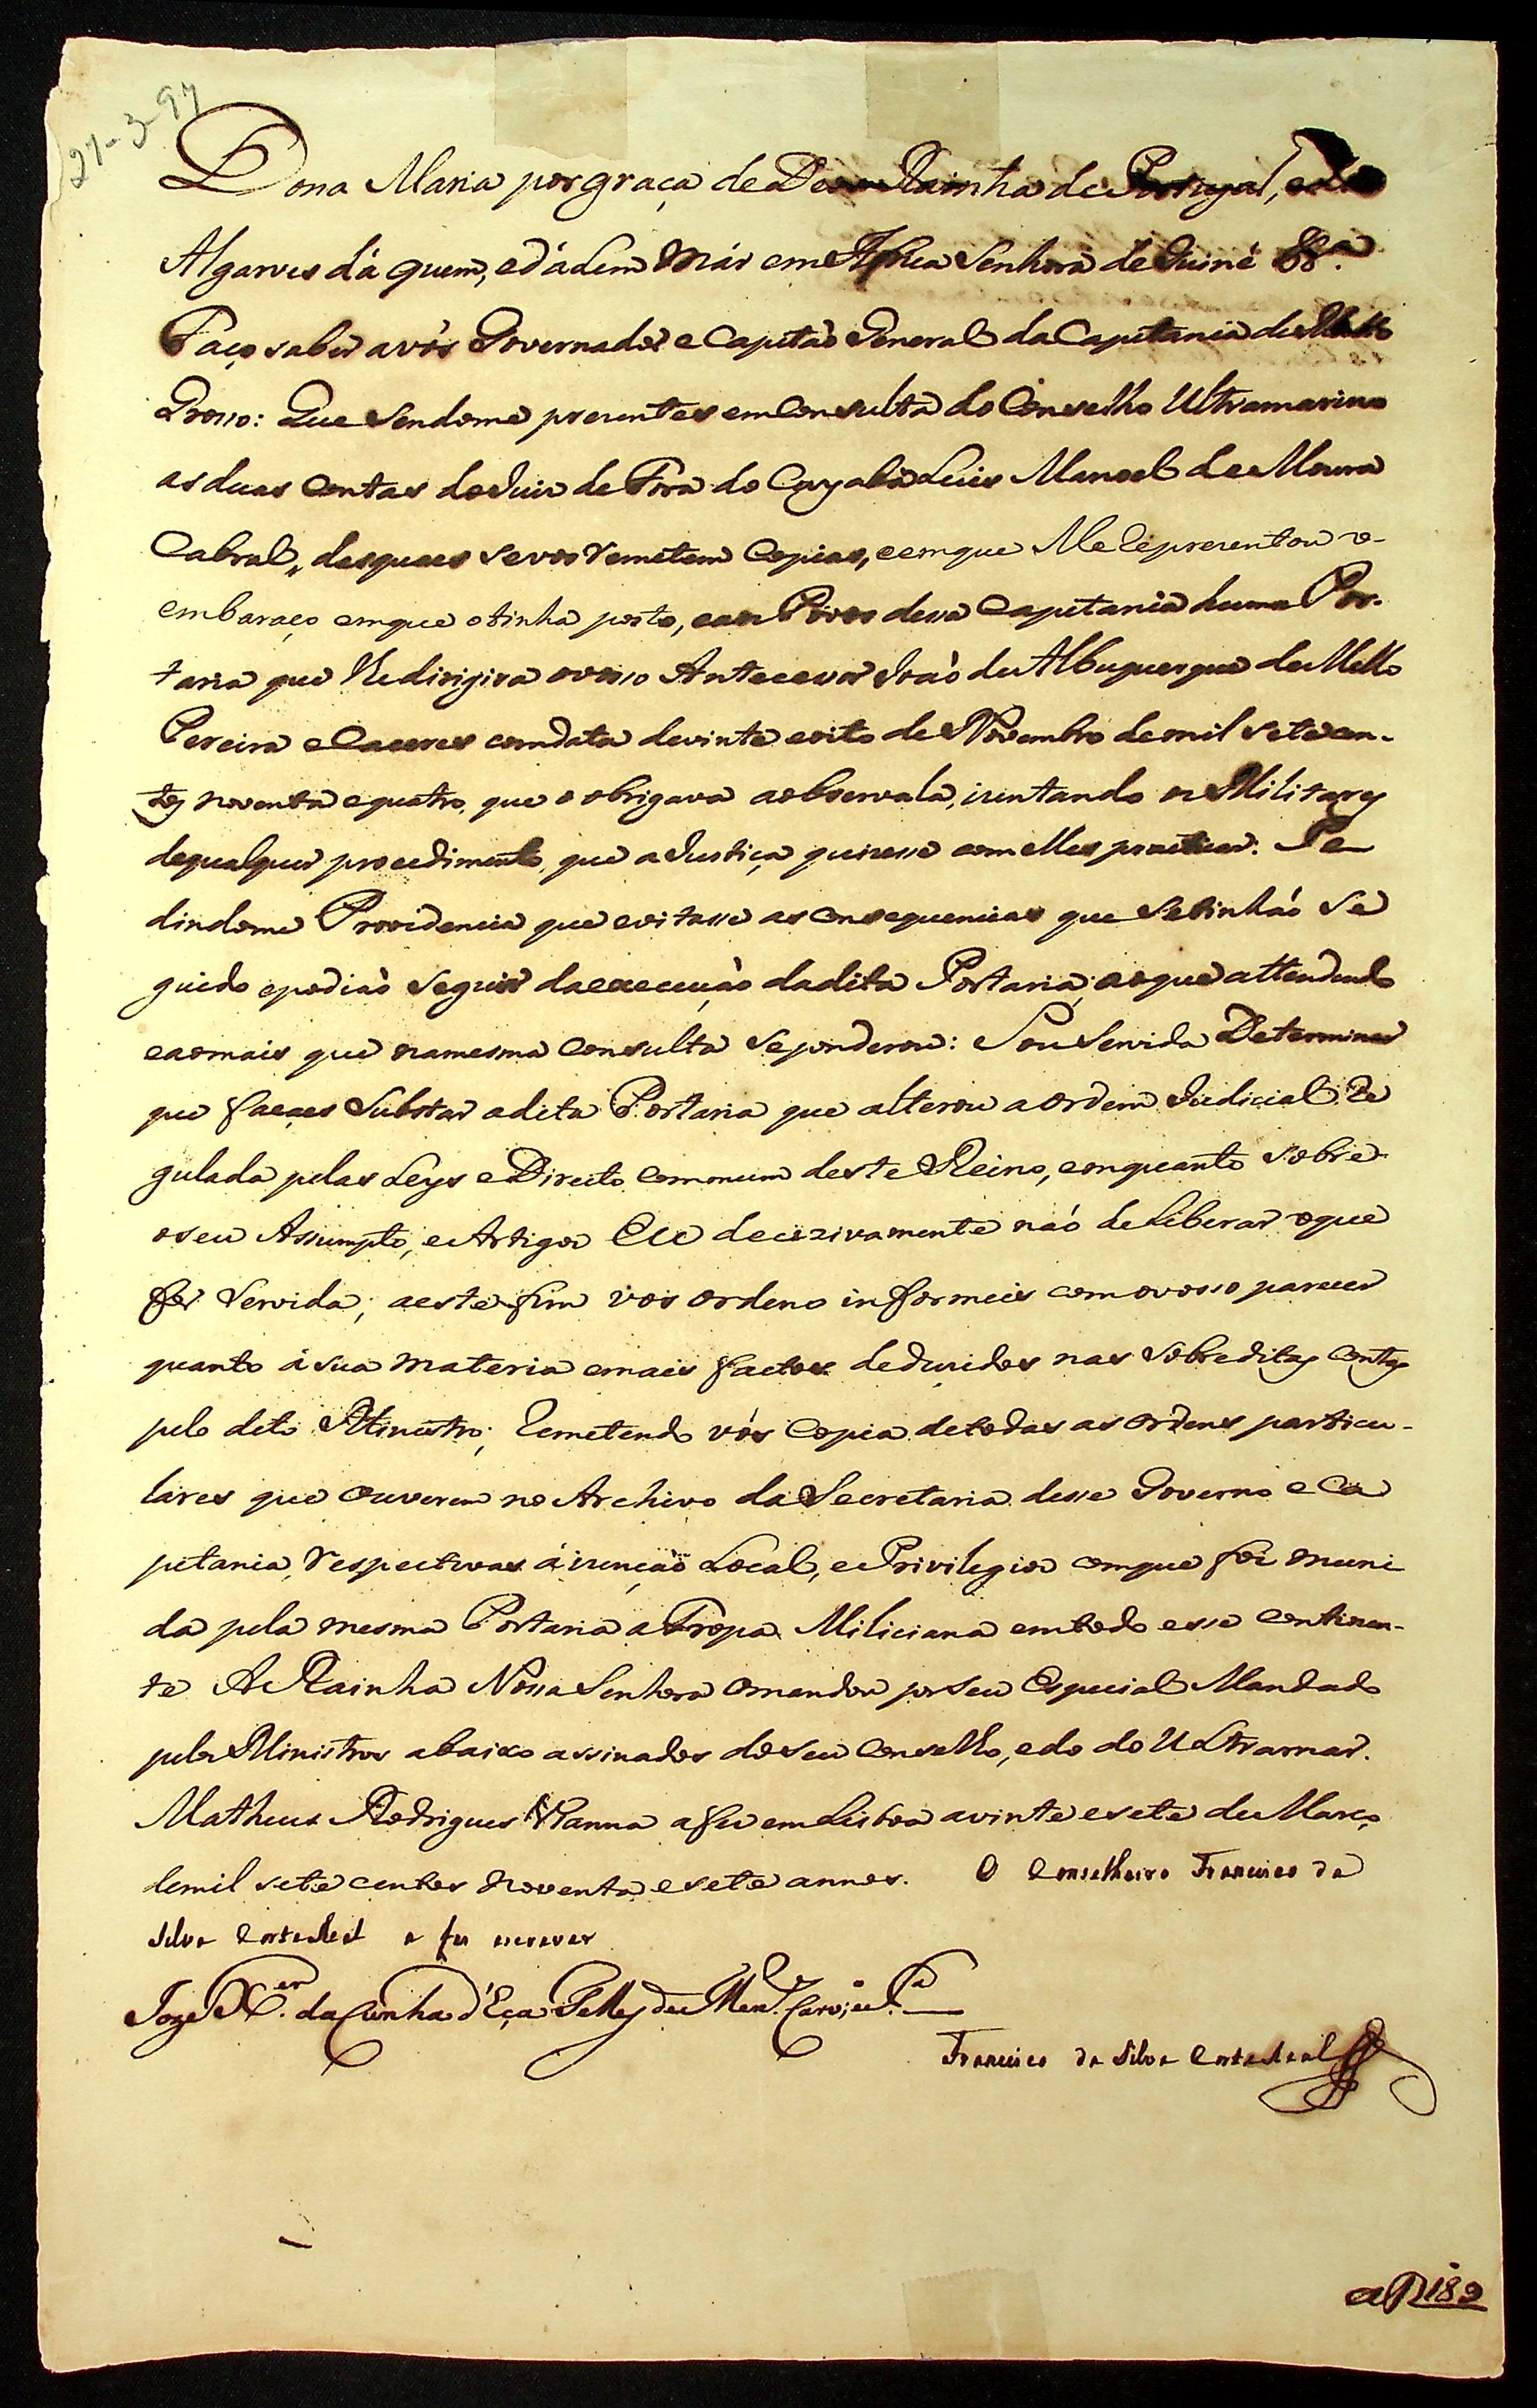 27-3-97
Dona Maria por graça de Deos Rainha de Portugal, e dos
Algarves dá quem, e dálem Már em Africa Senhora de Guiné &ª.
Faço saber a vós Governador e Capitaõ General da Capitania de Matto
Grosso: Que Sendome prezentes em Consulta do Conselho Ultramarino
as duas Contas do Juiz de Fora do Cuyabá Luis Manoel de Moura
Cabral, das quaes se vos remetem Copias, e em que Me Reprezentou o
embaraço em que o tinha posto, e aos Póvos dessa Capitania huma Por-
taria que lhe dirigira o vosso Antecessor Joaõ de Albuquerque de Mello
Pereira e Caceres com data de vinte e oito de Novembro de mil sete cen-
tos noventa e quatro, que o obrigava a observala, izentando os Militares
de qualquer procedimento, que a Justiça quizesse com elles practicar. Pe
dindome Providencia que evitasse as consequencias que se tinhaõ Se
guido e podiaõ seguir da execuçaõ da dita Portaria; ao que attendendo
e ao mais que na mesma Consulta se ponderou: Sou Servida Determinar
que façaes Substar a dita Portaria que alterou a ordem Judicial Re
gulada pelas Leys e Direito commum deste Reino, emquanto sobre
o seu Assumpto, e Artigos Eu decizivamente naõ deliberar o que
for Servida; a este fim vos ordeno informeis com o vosso parecer
quanto á sua materia e mais factos deduzidos nas sobreditas Contas
pelo dito Ministro; Remetendo vós Copia de todas as ordens particu-
lares que ouverem no Archivo da Secretaria desse Governo e Ca
pitania, respectivas á izençaõ Local, e Privilegios com que foi muni
da pela mesma Portaria a Tropa Miliciana em todo esse Continen-
te A Rainha Nossa Senhora o mandou por seu Especial Mandado
pelos Ministros abaixo assinados do seu Conselho, e do do Ultramar.
Matheus Rodrigues Vianna a fez em Lisboa a vinte e sete de Março
de mil sete centos noventa e sete annos. O Conselheiro Francisco da
Silva Corte Real a fez escrever
Joze X.er da Cunha d'Eça Telles de Men.es Carv.o e S.a
Francisco da Silva Corte Real